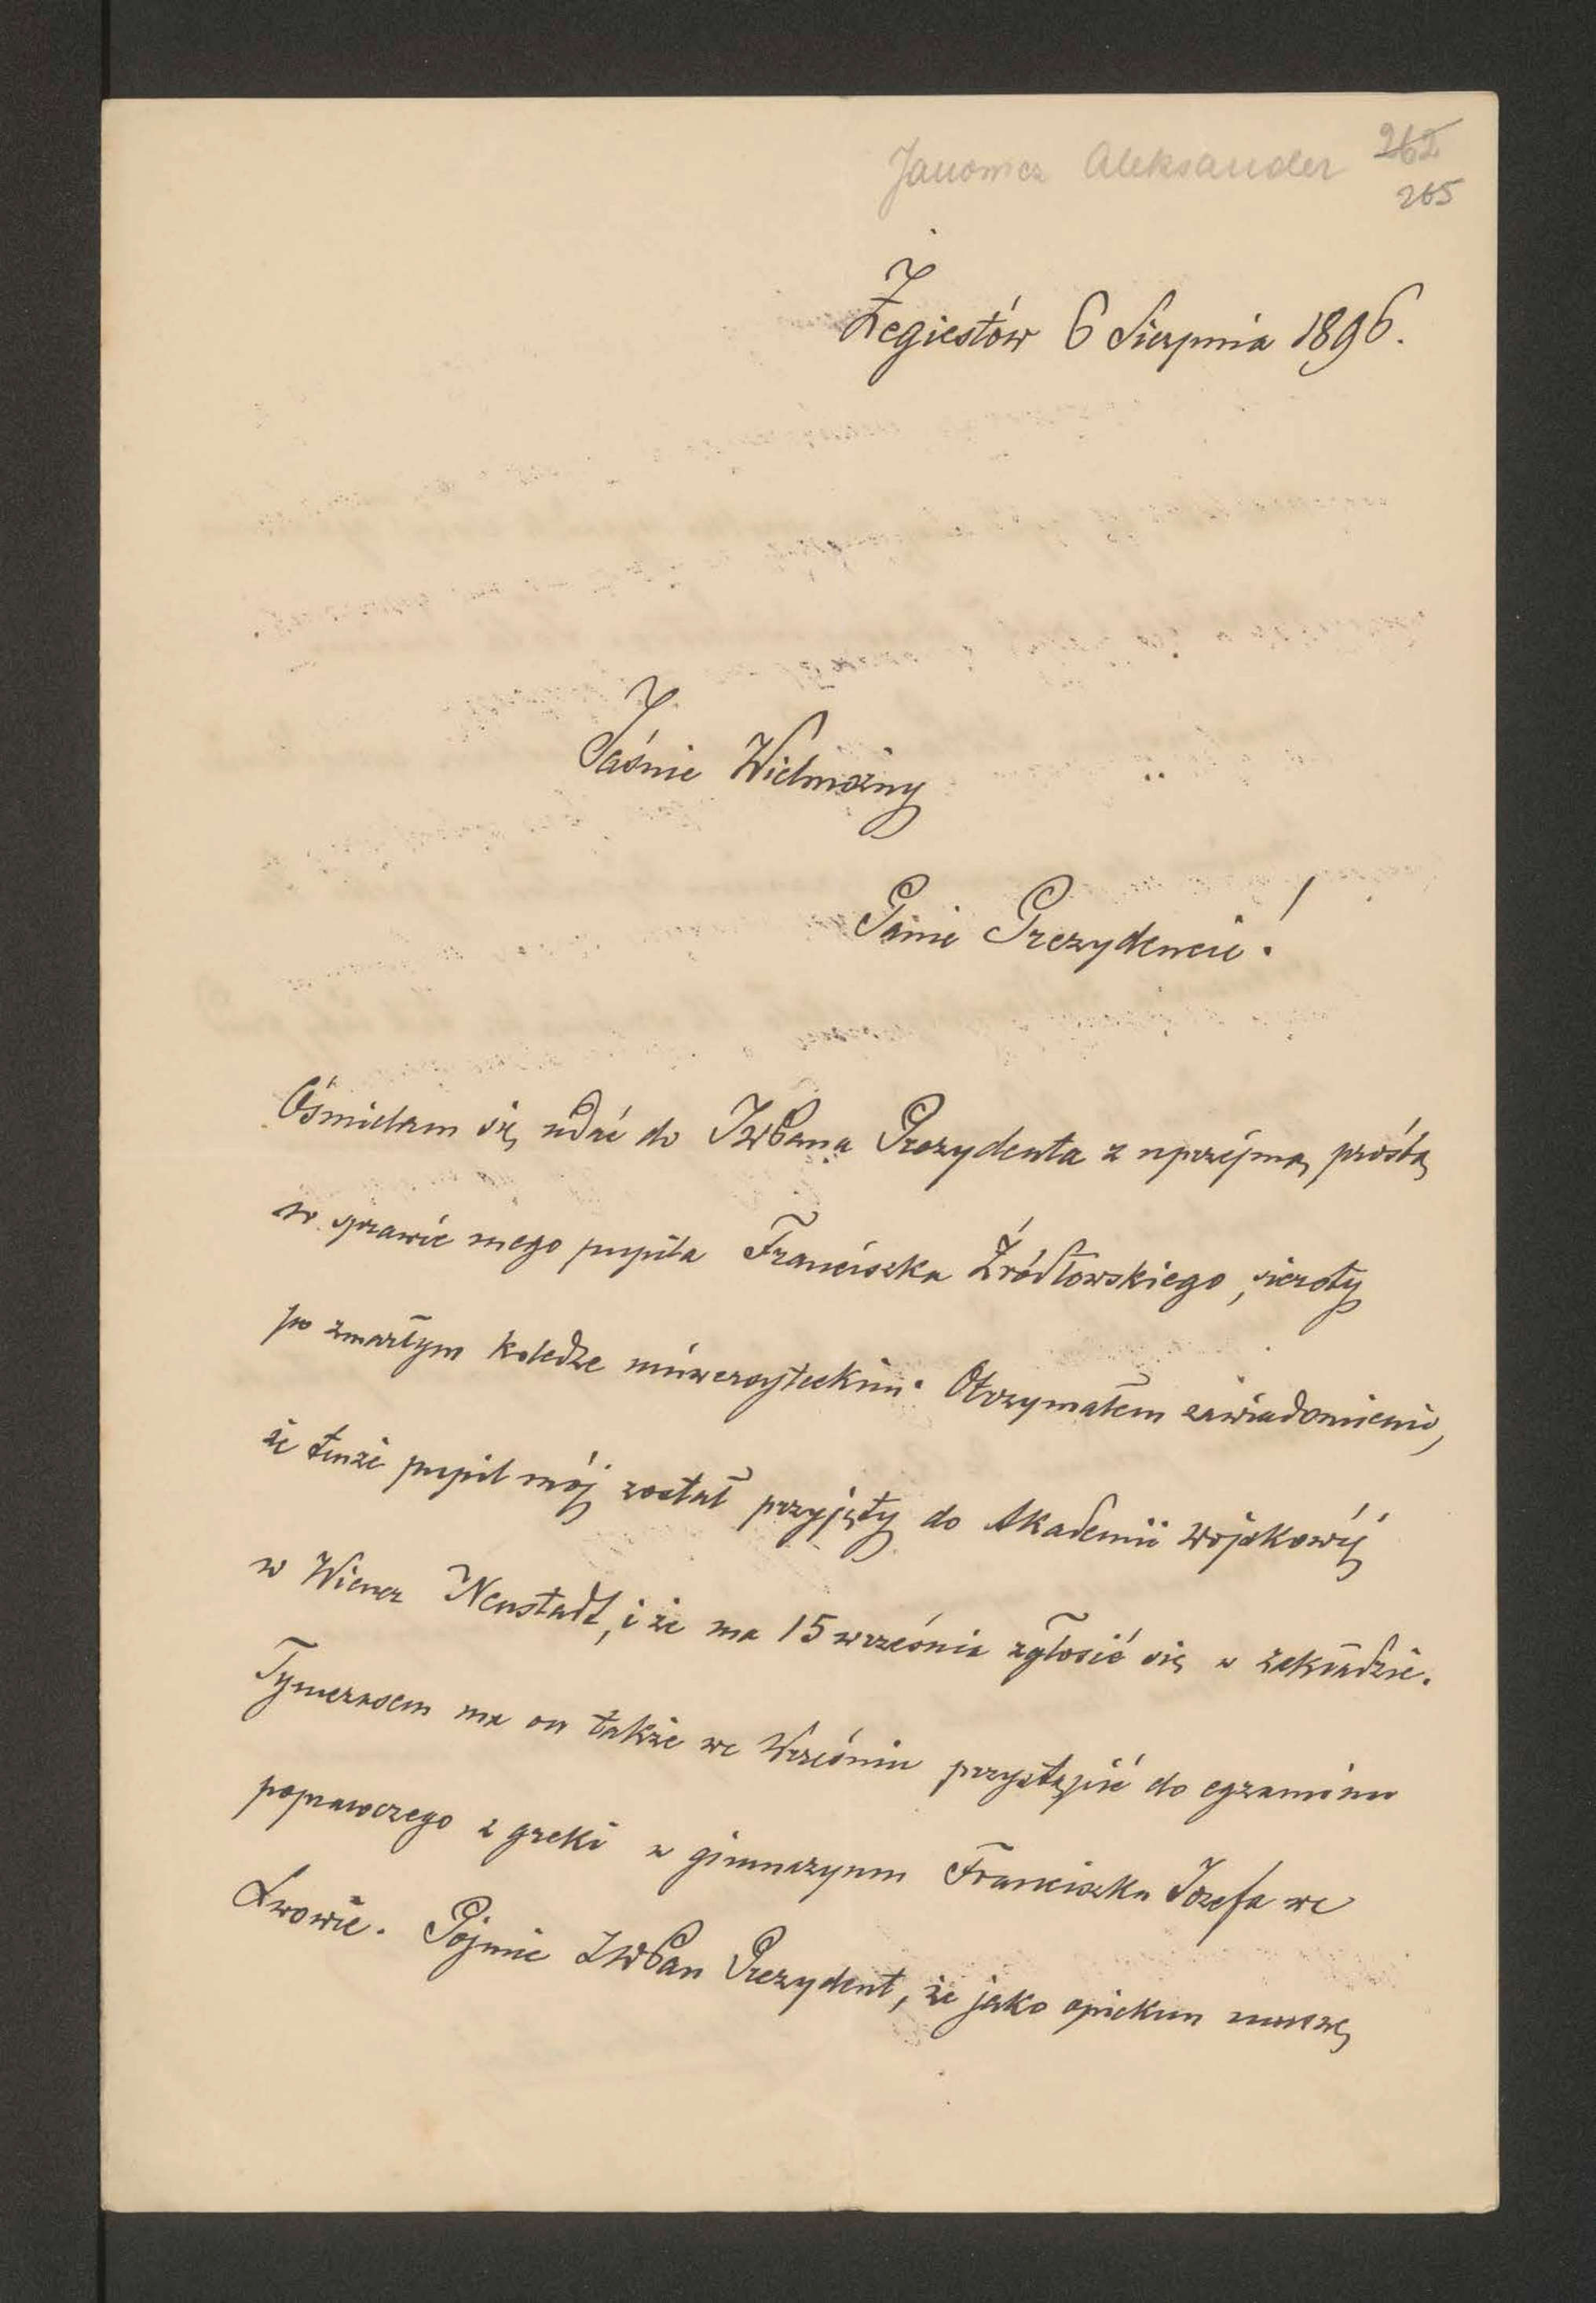 Janowicz Aleksander 262
265
Żegiestów 6 Sierpnia 1896.
Jaśnie Wielmożny
Panie Prezydencie!
Ośmielam się udać do JWPana Prezydenta z uprzejmą prośbą
w sprawie mego pupila Franciszka Źródłowskiego, sieroty
po zmarłym koledze uniwersyteckim. Otrzymałem zawiadomienie,
że tenże pupil mój został przyjęty do Akademii wojskowéj
w Wiener Neustadt, i że ma 15 września zgłosić się w zakładzie.
Tymczasem ma on także we Wrześniu przystąpić do egzaminu
poprawczego z greki w gimnazyum Franciszka Józefa we
Lwowie. Pojmie JWPan Prezydent, że jako opiekun muszę